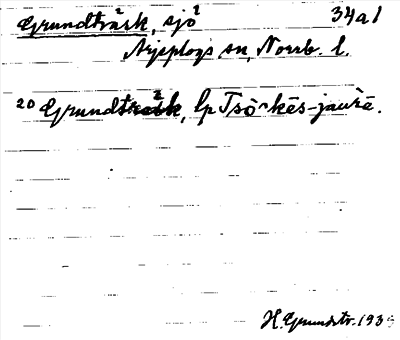 Grundträsk, sjö 34a1
Arjeplogs sn, Norrb. l.
20 Grundträsk, lp Tsōᵉkēs-jaurē.
H. Grundstr. 1939